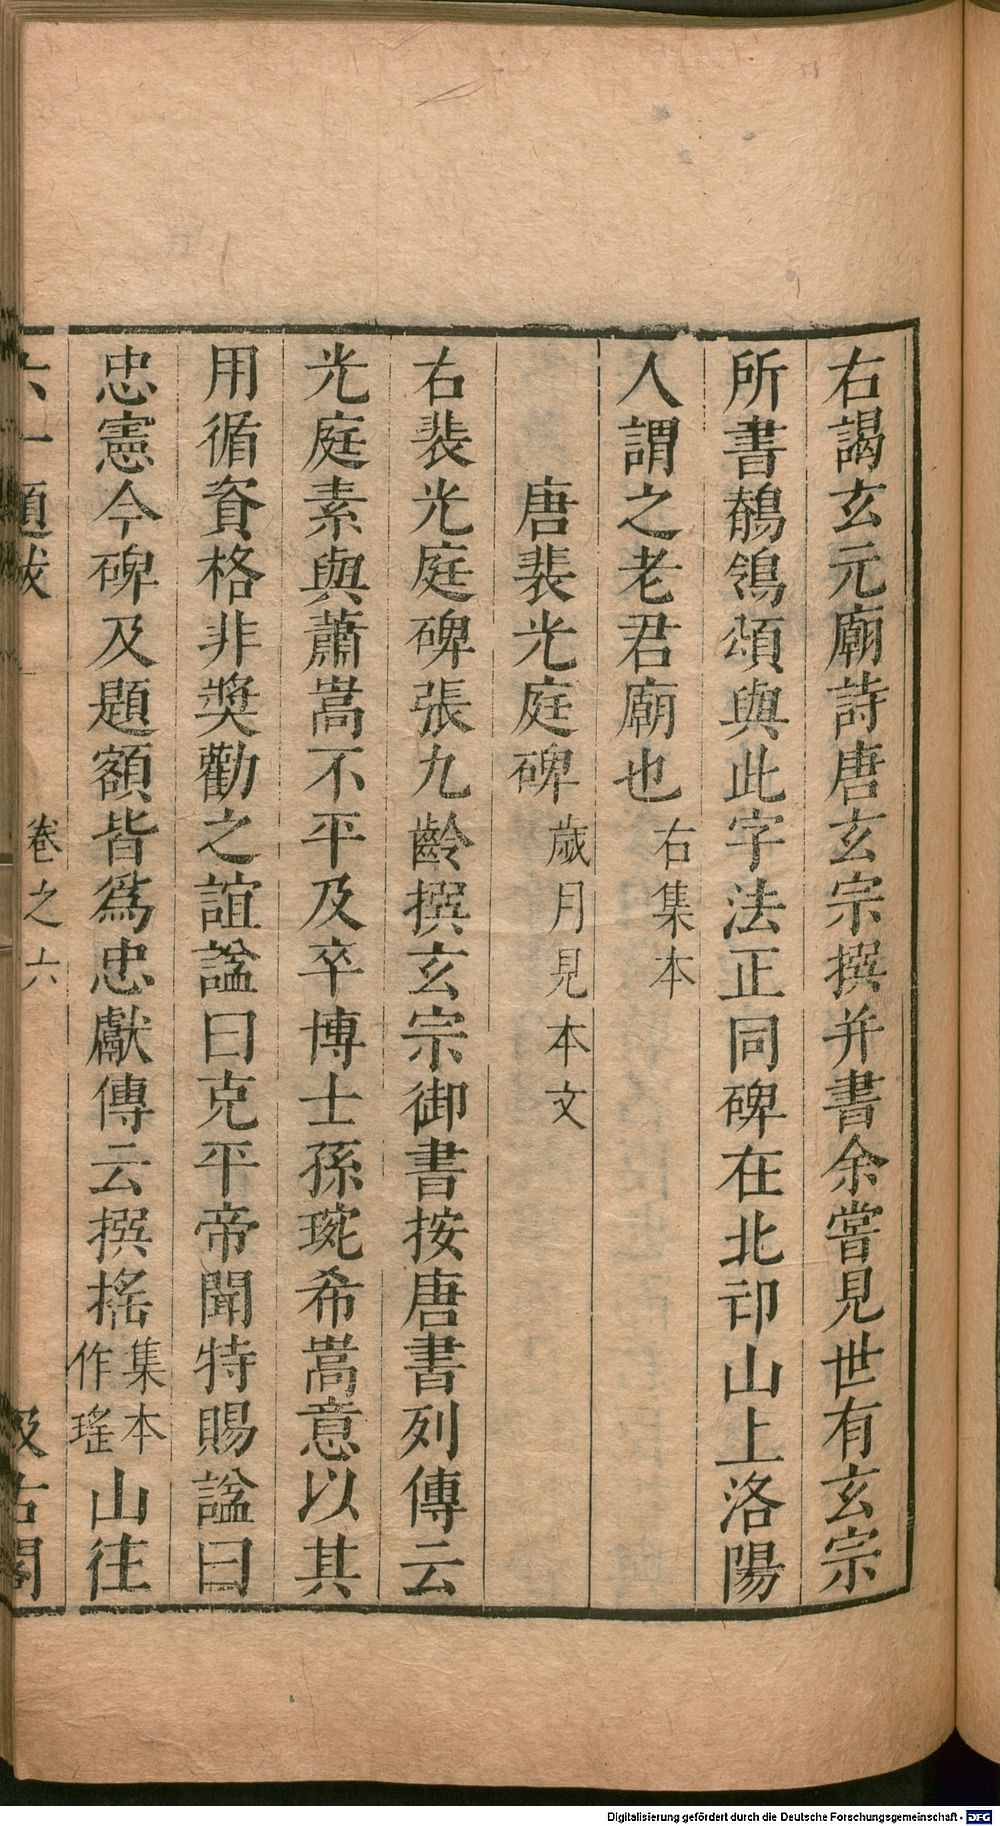 右謁玄元廟詩唐玄宗撰并書余嘗見世有玄宗
所書鶺鴒頌與此字法正同碑在北邙山上洛陽
人謂之老君廟也右集本
唐裴光庭碑歲月見本文
右裴光庭碑張九齡撰玄宗御書按唐書列傳云
光庭素與蕭嵩不平及卒博士孫琬希嵩意以其
用循資格非奬勸之誼諡曰克平帝聞特賜諡曰
忠憲今碑及題額皆爲忠獻傳云撰搖集本作瑤山往
六一題跋 卷之六 汲古閣
Digitalisierung gefördert durch die Deutsche Forschungsgemeinschaft - DFG